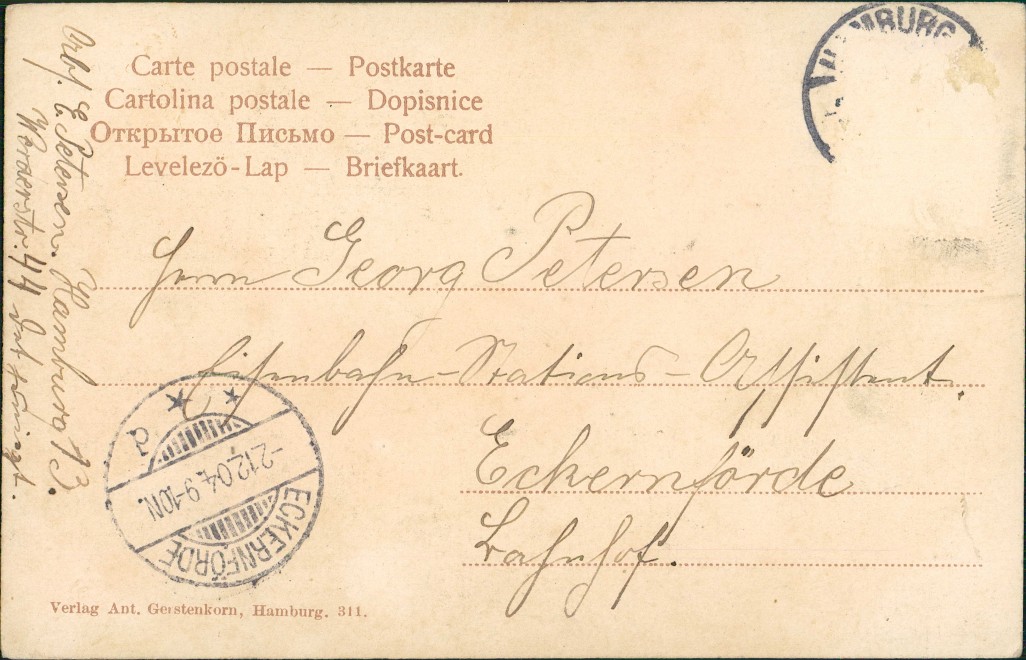 Carte postale — Postkarte
Cartolina postale — Dopisnice
Открытое Письмо — Post-card
Levelező-Lap — Briefkaart.
HAMBURG
Herrn Georg Petersen
Eisenbahn-Stations-Assistent.
Eckernförde
Bahnhof.
Abs. E. Petersen. Hamburg 13.
44
ECKERNFÖRDE
-2.12.04.9-10N.
* * d
Verlag Ant. Gerstenkorn, Hamburg. 311.